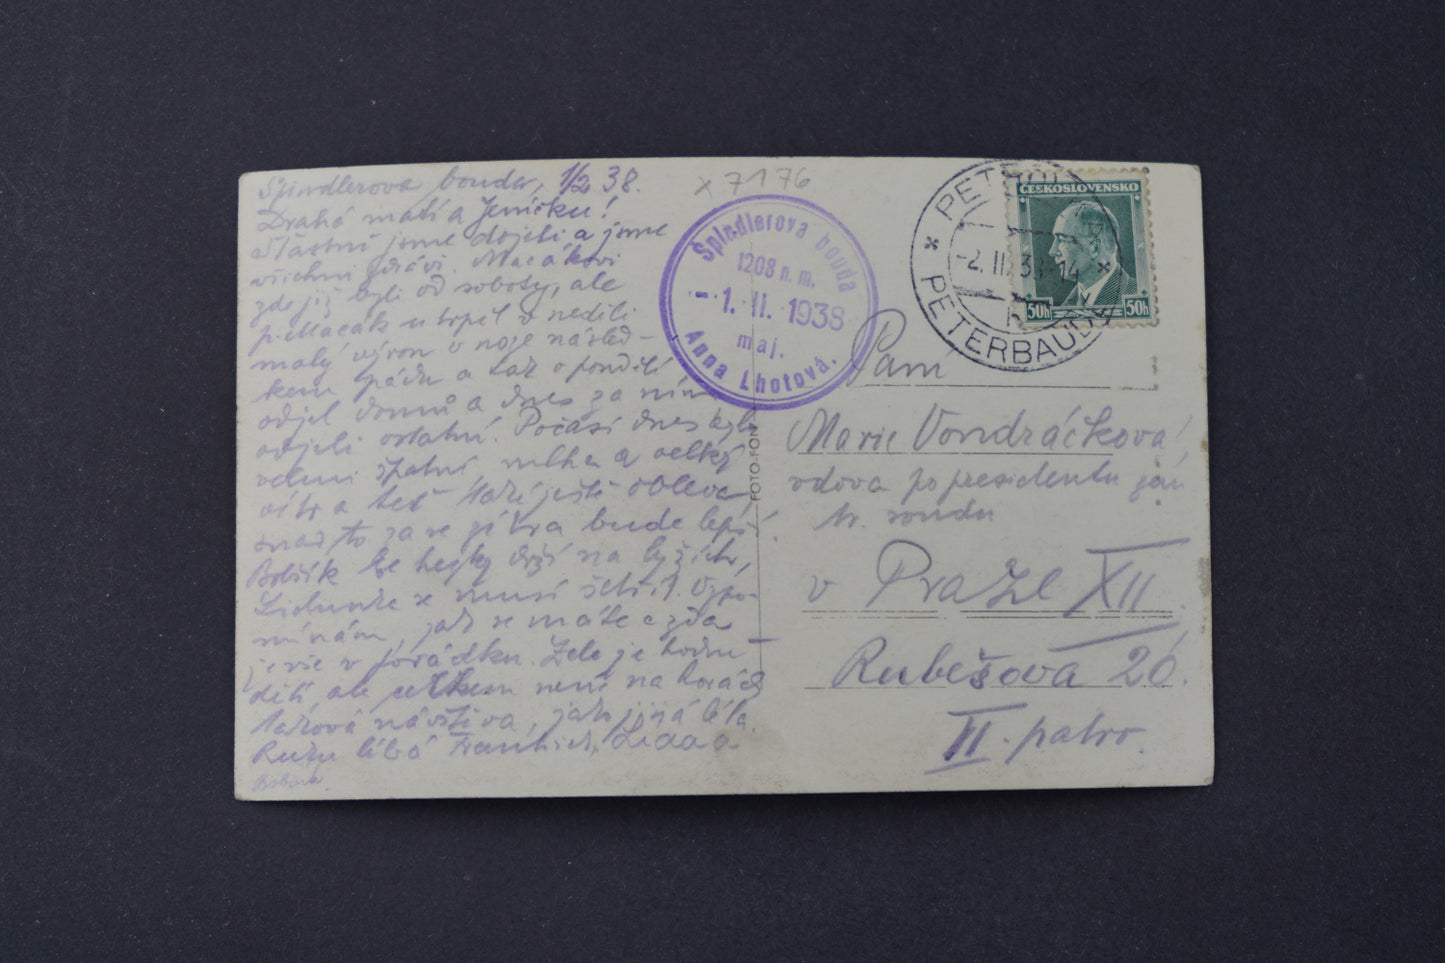 Špindlerova bouda, 1/2 38.
Drahá matí a Jeníčku!
Šťastně jsme dojeli a jsme
všichni zdrávi. Macákovi
zde již byli od soboty, ale
p. Macák utrpěl v neděli
malý výron v noze násled-
kem pádu a tak v pondělí
odjel domů a dnes za ním
odjeli ostatní. Počasí dnes bylo
velmi špatné, mlha a velký
vítr a teď ještě obleva,
snad to za se zítra bude lepší.
Bobšík se hezky drží na lyžích,
se musí šetřit. Vzpo-
mínám, jak se máte a zda
je vše v pořádku. Zde je hodně
dětí, ale celkem není na horách
taková návštěva, jako jiná léta.
Ruku líbá
x 7176
Špindlerova bouda
1208 n. m.
- 1. II. 1938
maj.
Anna Lhotová.
PETROV
-2. II. 38 - 14
PETERBAUDE
ČESKOSLOVENSKO
50h 50h
FOTO-FON
Paní
Marie Vondráčková,
vdova po presidentu
tr. soudu
v Praze XII
Rubešova 20.
II. patro.